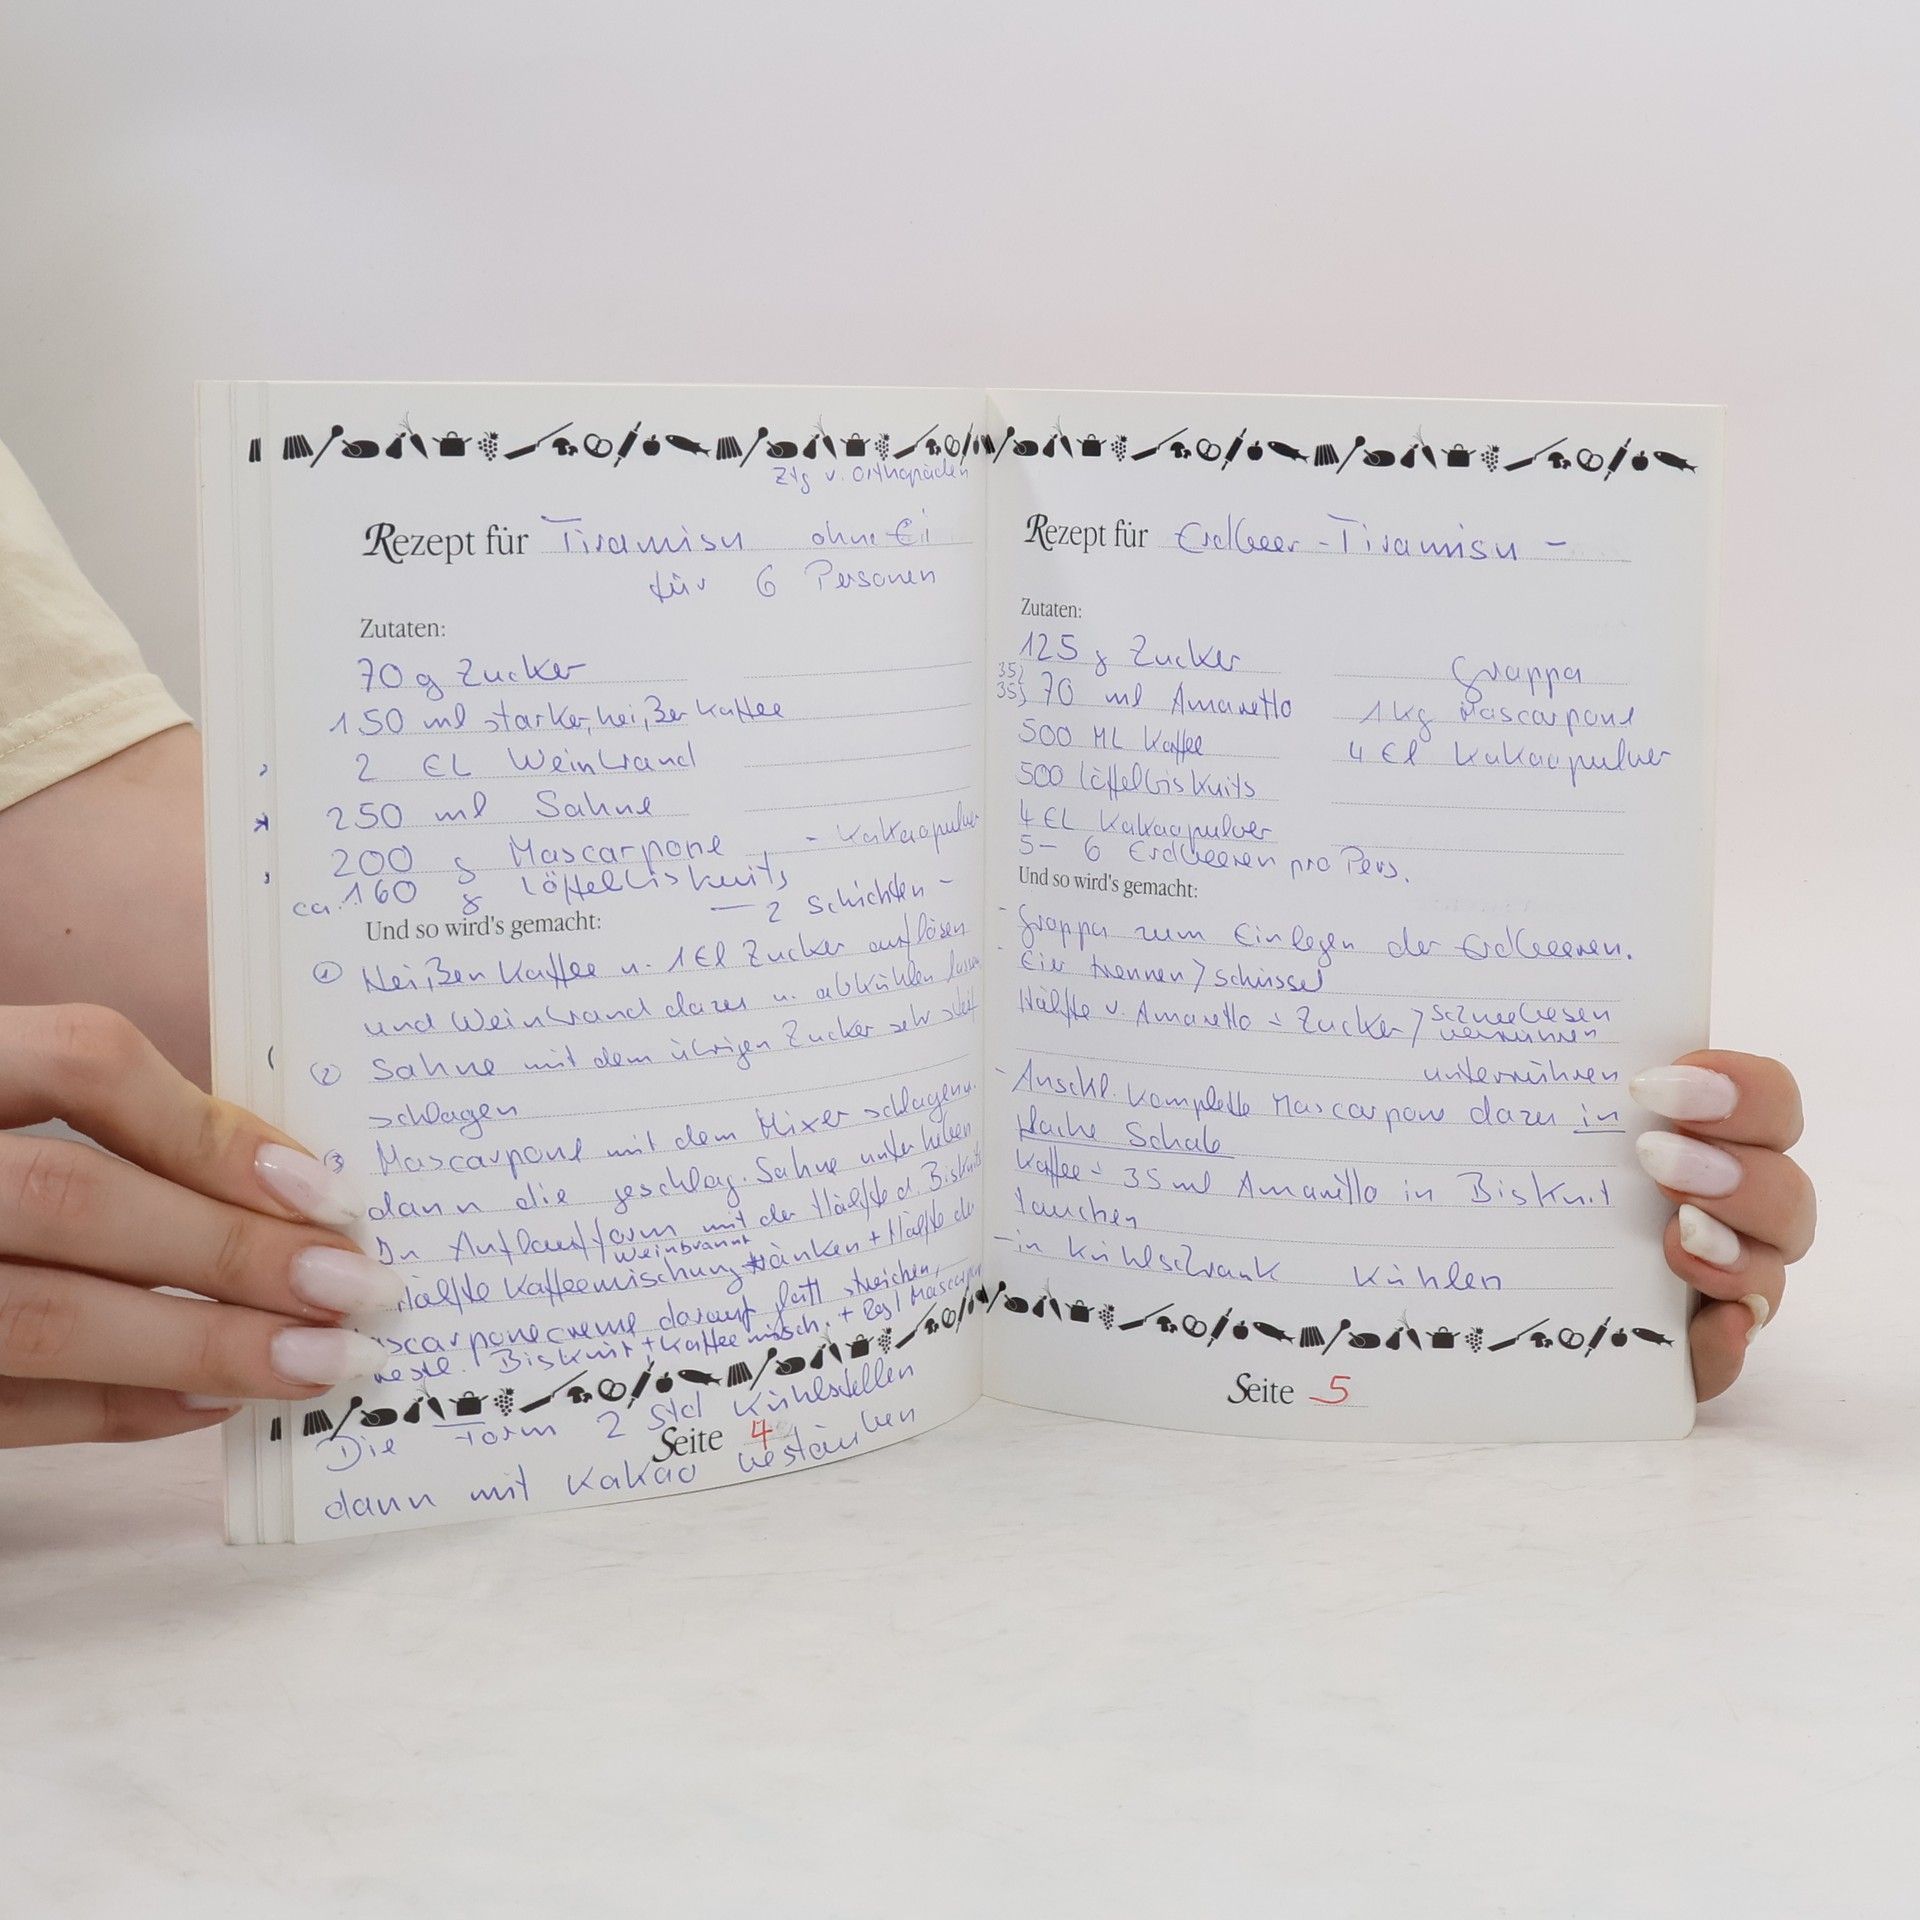 Ztg v. Orthopäden
Rezept für Tiramisu ohne Ei
für 6 Personen
Zutaten:
70 g Zucker
150 ml starker, heißer Kaffee
2 EL Weinbrand
250 ml Sahne
200 g Mascarpone - Kakaopulver
ca. 160 g Löffelbiskuits
— 2 Schichten -
Und so wird's gemacht:
① Heißen Kaffee u. 1 El Zucker auflösen
und Weinbrand dazu u. abkühlen lassen
② Sahne mit dem übrigen Zucker sehr steif
schlagen
③ Mascarpone mit dem Mixer schlagen u.
dann die geschlag. Sahne unterheben
In Auflaufform mit der Hälfte d. Biskuits
Weinbrannt
Hälfte Kaffeemischung tränken + Hälfte der
Mascarponecreme darauf glatt streichen,
restl. Biskuit + Kaffeemisch. + Rest Mascarpone
Die Form 2 Std Kühlstellen
Seite 4
dann mit Kakao bestäuben
Rezept für Erdbeer-Tiramisu -
Zutaten:
125 g Zucker Grappa
35}
35} 70 ml Amaretto 1 kg Mascarpone
500 ML Kaffee 4 El Kakaopulver
500 Löffelbiskuits
4 EL Kakaopulver
5- 6 Erdbeeren pro Pers.
Und so wird's gemacht:
- Grappa zum Einlegen der Erdbeeren.
- Eier trennen / Schüssel
Hälfte v. Amaretto = Zucker / Schneebesen
verrühren
unterrühren
- Anschl. komplette Mascarpone dazu in
flache Schale
Kaffee = 35 ml Amaretto in Biskuit
tauchen
- in Kühlschrank Kühlen
Seite 5